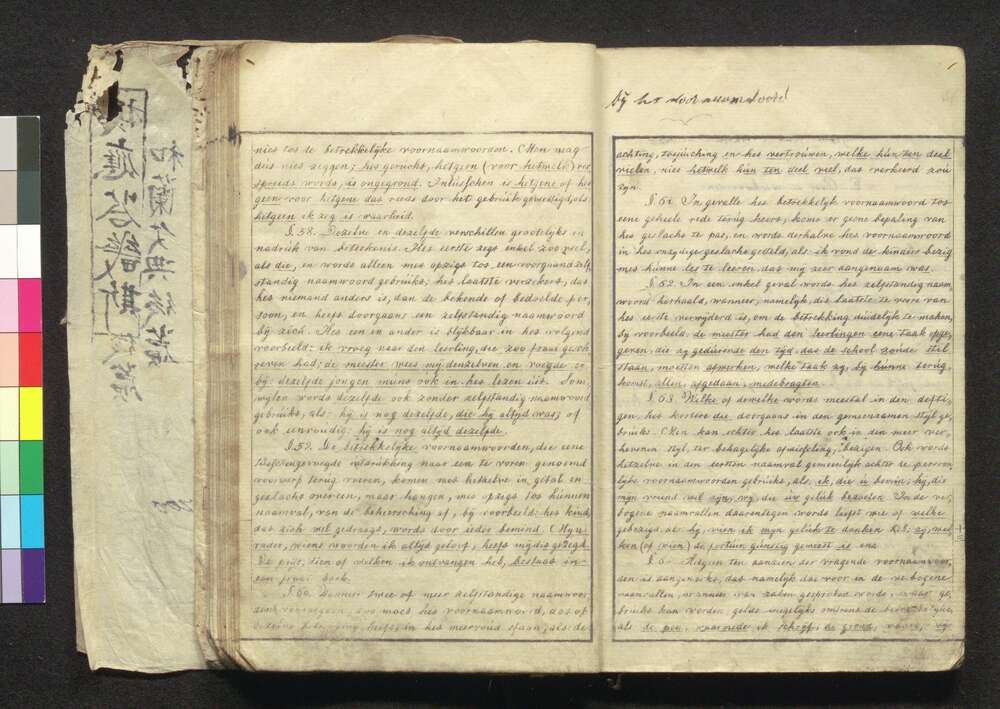 niet tot de betrekkelyke voornaamwoorden. Men mag
dus niet zeggen; het gerucht, hetgeen (voor hetwelk) ver
spreeds wordt, is ongegrond. Intusschen is hetgene of het
geene voor hetgene dat reeds door het gebruik gewettigd, als
hetgeen ik zeg is waarheid.
§. 58. Dezelve en dezelfde verschillen grootelyks in
nadruk van beteekenis. Het eerste zegt enkel zoo veel,
als die, en wordt alleen met opzigt tot een voorgaand zelf
standig naamwoord gebruikt; het laatste verzekert, dat
het niemand anders is, dan de bekende of bedoelde per
soon, en heeft doorgaans een zelfstandig naamwoord
by zich. Het een en ander is blykbaar in het volgend
voorbeeld: ik vroeg naar den leerling, die zoo fraai gesch
reven had; de meester wees my denzelven, en voegde er
by: dezelfde jongen munt ook in het lezen uit. Som
wylen wordt dezelfde ook zonder zelfstandig naamwoord
gebruikt, als: hy is nog dezelfde, die hy altyd was; of
ook eenvoudig: hy is nog altyd dezelfde.
§. 59. De betrekkelyke voornaamwoorden, die eene
tusschengevoegde uitdrukking naar een te voren genoemd
voorwerp terug voeren, komen met hetzelve in getal en
geslacht overeen, maar hangen, met opzigt tot hunnen
naamval, van de beheersching af, by voorbeeld: het kind,
dat zich wel gedraagt, wordt door ieder bemind. Myn
vader, wiens woorden ik altyd geloof, heeft my dit gezegd.
De prys, dien of welken ik ontvangen heb, bestaat in
een fraai boek.
§. 60. Wanneer twee of meer zelfstandige naamwoor
den voorafgaan, zoo moet het voornaamwoord, dat op
heeft, in het meervoud staan, als: de
by het voornaamwoord
achting, toejuiching en het vertrouwen, welke hun ten deel
vielen, niet hetwelk hun ten deel viel, dat verkeerd zou
zyn.
§. 61. In gevalle het betrekkelyk voornaamwoord tot
eene geheele rede terug keert, komt er geene bepaling van
het geslacht te pas, en wordt derhalve het voornaamwoord
in het onzydige geslacht gesteld, als: ik vond de kinders bezig
met hunne les te leeren, dat my zeer aangenaam was.
§. 62. In een enkel geval wordt het zelfstandig naam
woord herhaald, wanneer, namelyk, dit laatste te verre van
het eerste verwyderd is, om de betrekking duidelyk te maken,
by voorbeeld, de meester had den leerlingen eene taak opge
geven, die zy gedurende den tyd, dat de school zoude stil
staan, moesten afwerken, welke taak zy, by hunne terug
komst, allen, afgedaan, medebragten.
§. 63. Welke of dewelke wordt meestal in den defti
gen, het kortere die doorgaans in den gemeenzamen styl ge
bruikt. Men kan echter het laatste ook in den meer ver
hevenen styl, ter behagelyke afwisseling, bezigen. Ook wordt
hetzelve in den eersten naamval gemeenlyk achter de persoon
lyke voornaamwoorden gebruikt, als, ik, die u bemin, hy, die
myn vriend wil zyn, wy, die uw geluk bedoelen. In de ver
bogene naamvallen daarentegen wordt liefst wie of welke
gebezigd, als hy, wien ik myn geluk te danken heb, zy, wel
ken (of wien) de fortuin gunstig geweest is enz.
§. 6 . Hetgeen ten aanzien der vragende voornaamwoor
den is aangemerkt, dat namelyk dat voor in de verbogene
naamvallen, wanneer van zaken gesproken wordt, waar ge
bruikt kan worden, geldt insgelyks omtrent de betrekkelyke,
als de pen, waarmede ik schryf, de grond, waarop wy